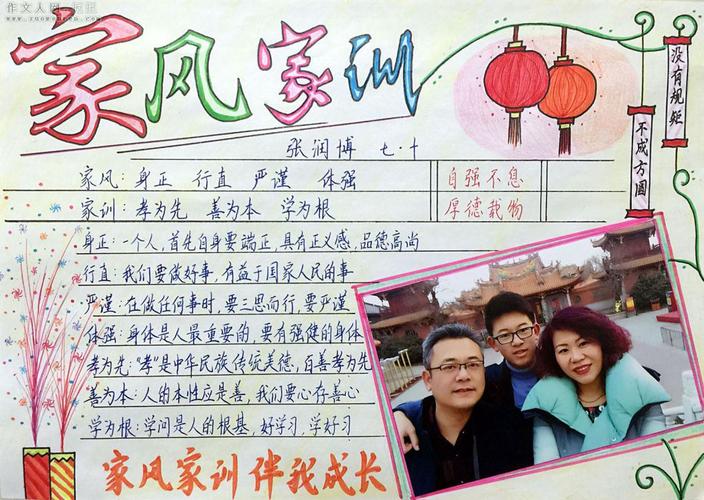 作文人网
家风家训
没有规矩
不成方圆
张润博 七·十
家风：身正 行直 严谨 体强 自强不息
家训：孝为先 善为本 学为根 厚德载物
身正：一个人，首先自身要端正，具有正义感，品德高尚
行直：我们要做好事，有益于国家人民的事
严谨：在做任何事时，要三思而行，要严谨
体强：身体是人最重要的，要有强健的身体
孝为先：“孝”是中华民族传统美德，百善孝为先
善为本：人的本性应是善，我们要心存善心
学为根：学问是人的根基，好学习，学好习
家风家训伴我成长